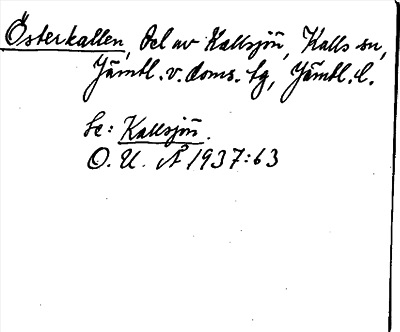 Österkallen, Del av Kallsjön, Kalls sn,
Jämtl. v. doms. tg, Jämtl. l.
Se: Kallsjön.
O. U. Å 1937:63